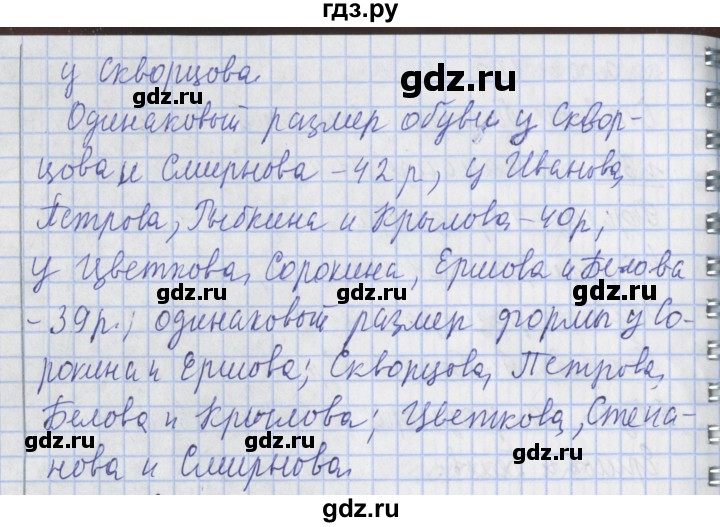 гдз.ру
у Скворцова.
Одинаковый размер обуви у Сквор-
цова и Смирнова - 42 р, у Иванова,
Петрова, Рыбкина и Крылова - 40р;
у Цветкова, Сорокина, Ершова и Белова
- 39р.; одинаковый размер формы у Со-
рокина и Ершова; Скворцова, Петрова,
Белова и Крылова; Цветкова, Степа-
нова и Смирнова.
gdz.ru
gdz.ru
gdz.ru
gdz.ru
gdz.ru
gdz.ru
gdz.ru
gdz.ru
gdz.ru
gdz.ru
gdz.ru
gdz.ru